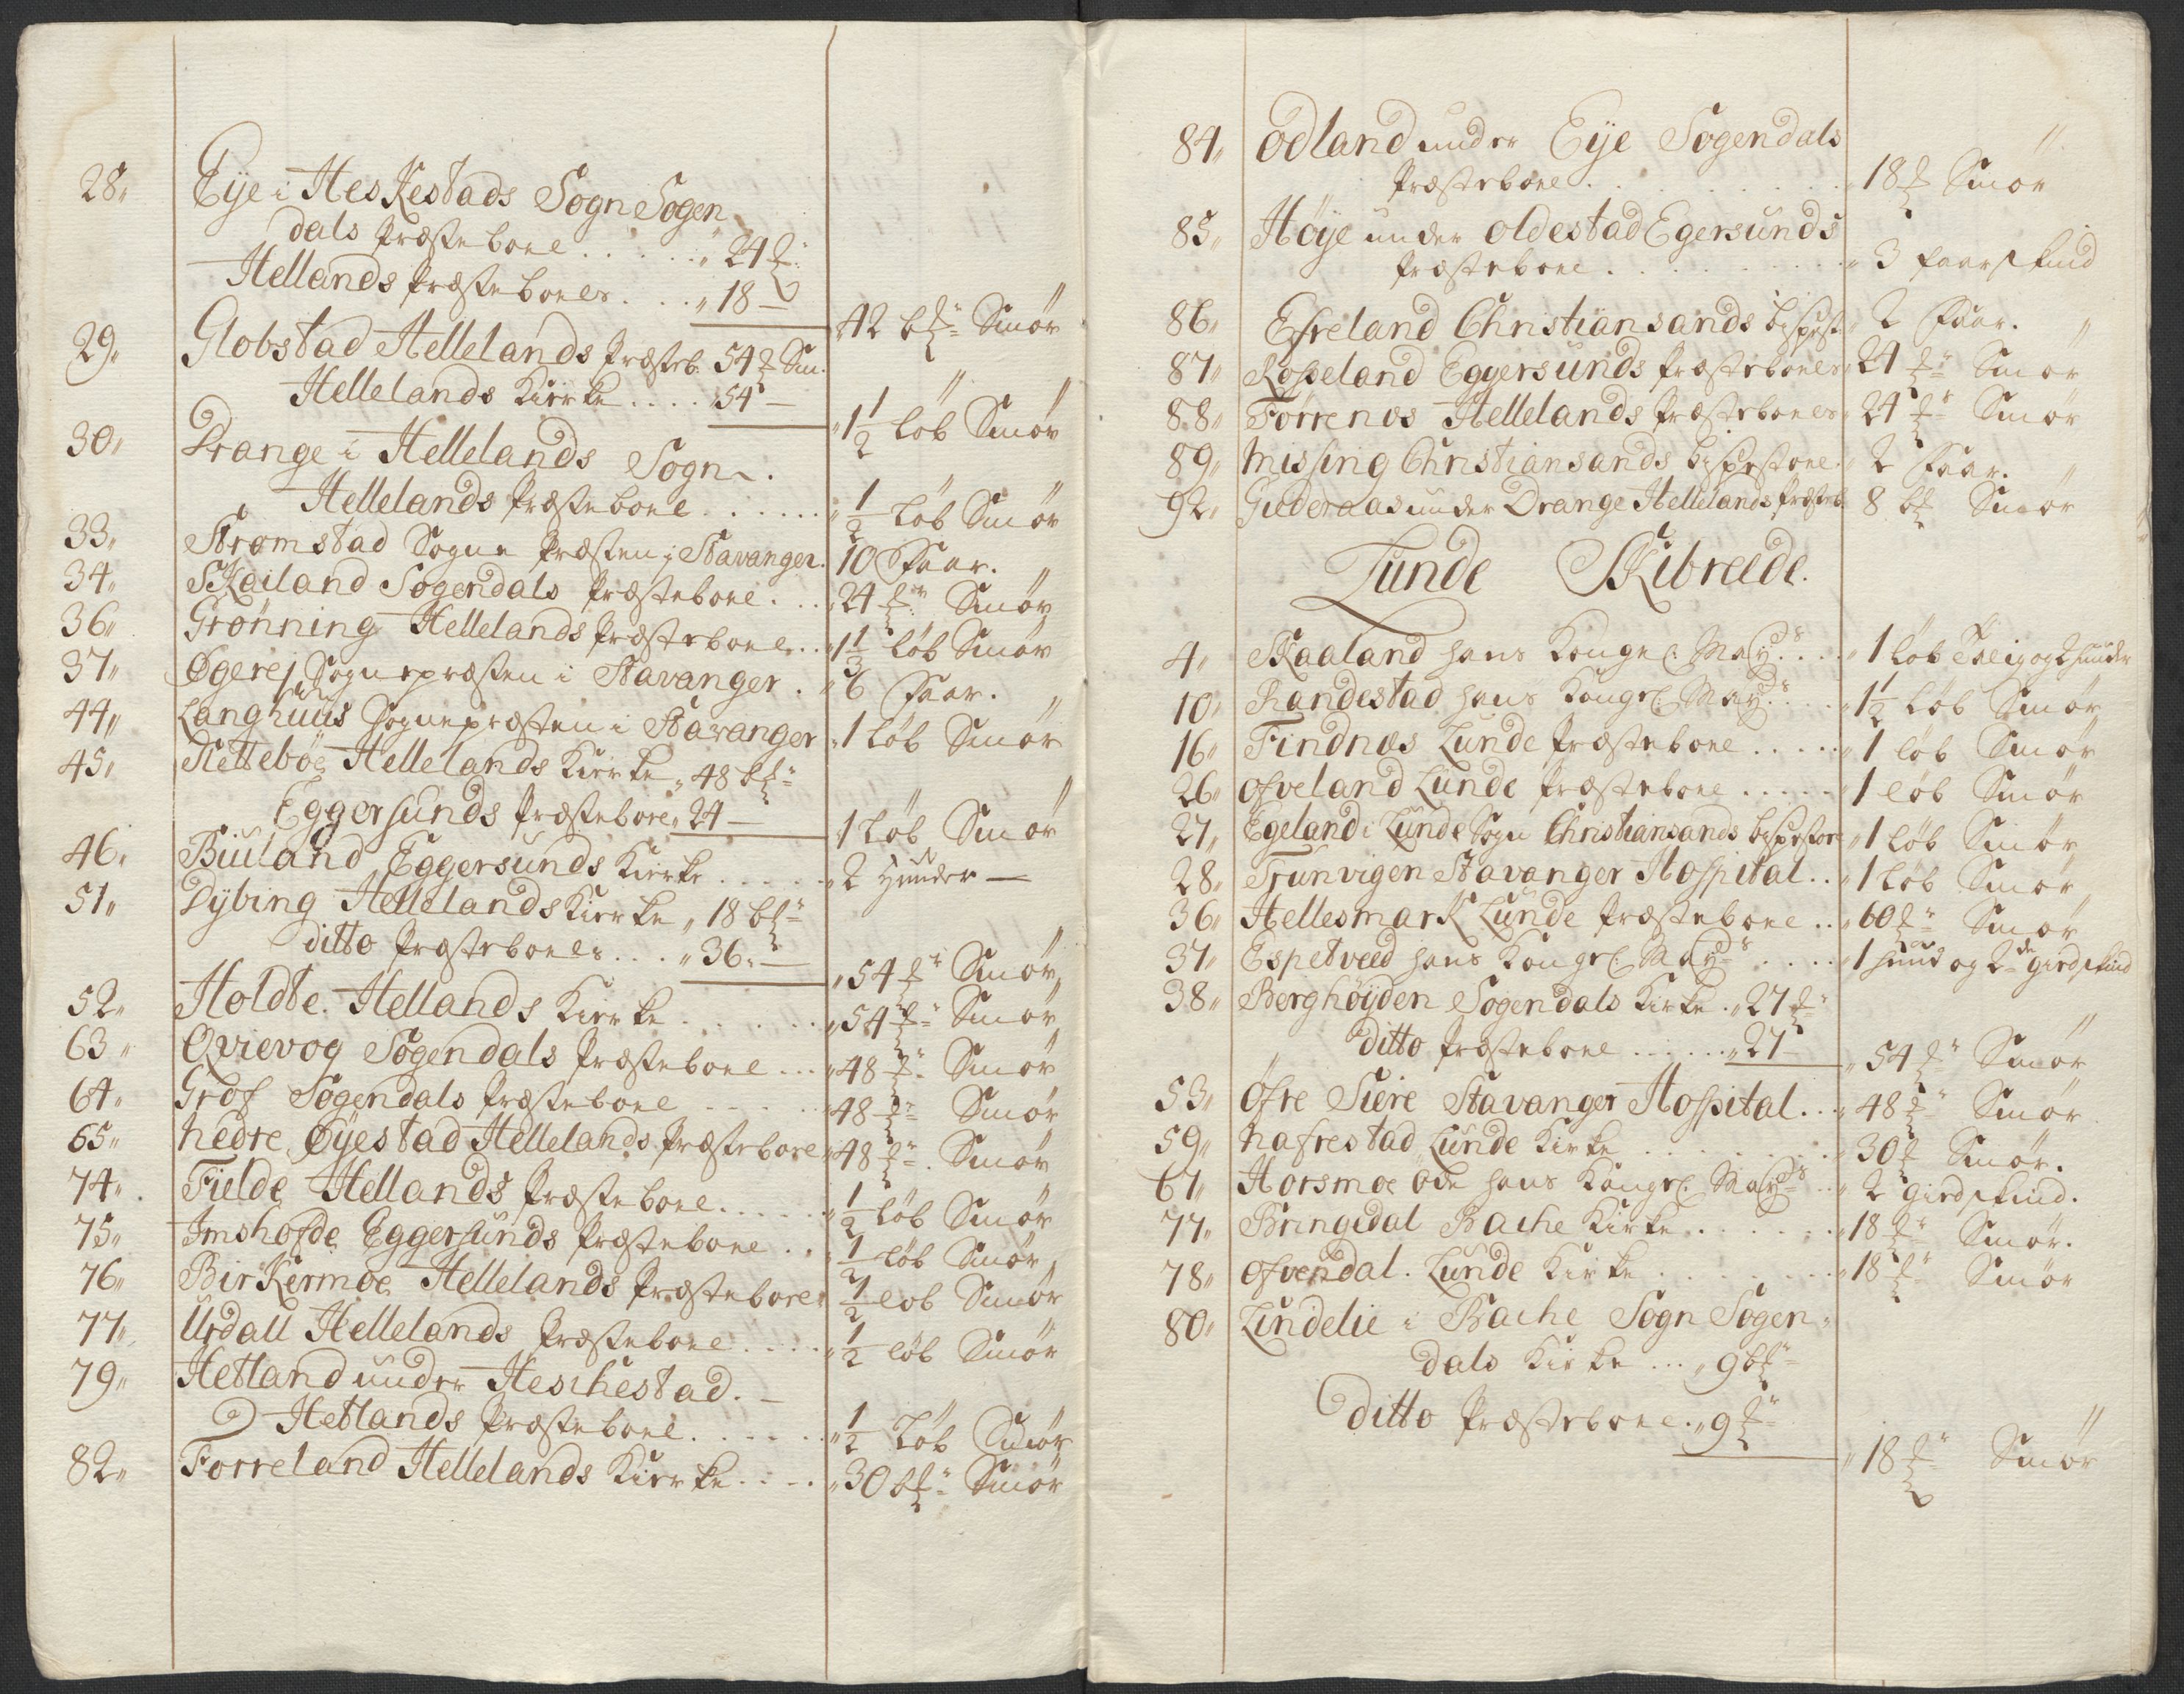 28„ Eije i Heskestads Sogn Sogen
dals Præsteboel . . . . . „ 24 ℔.
Hellands Præsteboelr. . . . „ 18 — „ 42 b℔r Smør
29„ Globstad Hellelands Præsteb. 54 ℔ Sm.
Hellelands Kierke . . . . „ 54 — „ 1½ løb Smør
30„ Drange i Hellelands Sogn.
Hellelands Præsteboel . . . . . . „ ½ løb Smør
33„ Strømstad Sogne Præsten i Stavanger. 10 Faar.
34„ Skailand Sogendals Præsteboel . . „ 24 ℔r Smør
36„ Grønning Hellelands Præsteboele . . „ 1⅓ løb Smør
37„ Øgerej Sognepræsten i Stavanger . „ 6 Faar.
44„ Langhuus Sognepræsten i Stavanger „ 1 løb Smør
45„ Nettebøe Hellelands Kierke „ 48 b℔r
Eggersunds Præsteboel „ 24 — „ 1 løb Smør
46„ Biuland Eggersunds Kierke . . . . . „ 2 Huuder —
51„ Dybing Hellelands Kierke „ 18 b℔r
ditto Præsteboele . . . „ 36. — „ 54 ℔r Smør
52„ Holdte Hellands Kierke . . . . . . „ 54 ℔r Smør
63„ Qvievog Sogendals Præsteboel . . . „ 48 ℔r Smør
64„ Grof Sogendals Præsteboel . . . . . „ 48 ℔r Smør
65„ Nedre Øyestad Hellelands Præsteboel „ 48 ℔r. Smør
74„ Fielde Hellands Præsteboel . . . . . „ ½ løb Smør
75„ Imshofde Eggersunds Præsteboel . . „ ½ løb Smør
76„ Birkermoe Hellelands Præsteboel „ ½ løb Smør
77„ Urdall Hellelands Præsteboel . . . . „ ½ løb Smør
79„ Hetland under Heschestad. —
Hetlands Præsteboel . . . . . . „ ½ løb Smør
82„ Forreland Hellelands Kierke . . . . „ 30 b℔r Smør
84„ Odland under Eije Sogendals
Præsteboel . . . . . . . . . „ 18 ℔ Smør
85„ Høije under Oldestad Egersunds
Præsteboel . . . . . . . . . „ 3 faarskind
86„ Efreland Christiansands bispest. „ 2 Faar.
87„ Rosseland Eggersunds Præsteboele „ 24 ℔r Smør
88„ Førrenæs Hellelands Præsteboele „ 24 ℔r Smør
89„ Missing Christiansands bispestoel „ 2 Faar.
92„ Guderaas under Drange Hellelands Præsteb. 8 b℔ Smør
Lunde Skibreede.
4„ Skaaland hans Kongel: Mayds . . . . „ 1 løb Tælg og 2 huuder
10„ Randestad hans Kongel: Mayds . . . . „ 1½ løb Smør
16„ Findnæs Lunde Præsteboel . . . . . „ 1 løb Smør
26„ Ofveland Lunde Præsteboel . . . . . „ 1 løb Smør
27„ Egeland i Lunde Sogn Christiansands bispestoel „ 1 løb Smør
28„ Trunvigen Stavanger Hospital . . „ 1 løb Smør
36„ Hellesmark Lunde Præsteboel . . „ 60 ℔r Smør
37„ Espetveed hans Kongel: Mayds . . . . „ 1 huud og 2de giedskind
38„ Berghøyden Sogendals Kirke . „ 27 ℔r
ditto Præsteboel . . . . . . „ 27 — „ 54 ℔r Smør
53„ Øfre Siere Stavanger Hospital . . „ 48 ℔r Smør
59„ Nafrestad Lunde Kirke . . . . . . . „ 30 ℔ Smør.
67„ Horsmoe øde hans Kongel: Mayds . . „ 2 giedskind.
77„ Bringedal Bache Kirke . . . . . . „ 18 ℔r Smør.
78„ Ofvendal. Lunde Kirke . . . . . . . „ 18 ℔r Smør
80„ Lindelie i Bache Sogn Sogen-
dals Kirke . . . „ 9 b℔r
ditto Præsteboel . „ 9 ℔r „ 18 ℔r Smør